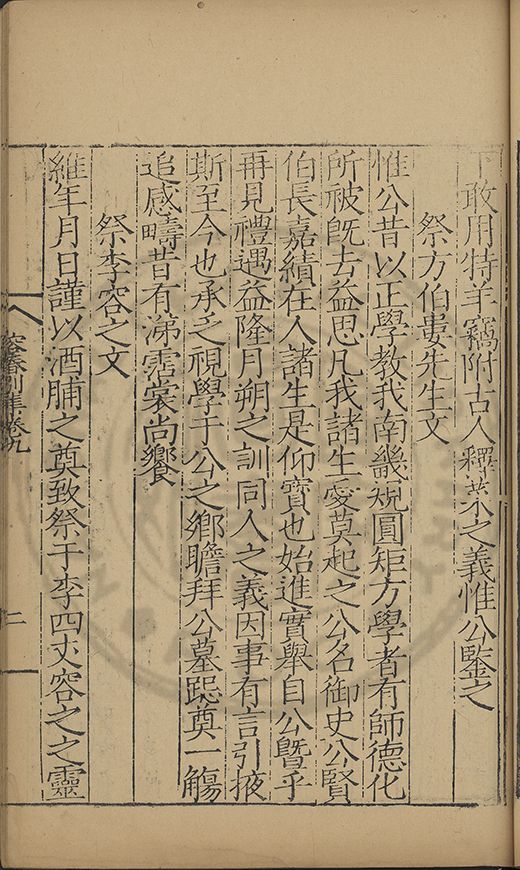 下敢用特羊竊附古人釋菜之義惟公鑒之
祭方伯婁先生文
惟公昔以正學教我南畿規圓矩方學者有師德化
所被既去益思凡我諸生愛莫起之公名御史公賢
伯長嘉績在人諸生是仰寶也始進實舉自公曁乎
再見禮遇益隆月朔之訓同人之義因事有言引掖
斯至今也承乏視學于公之鄉瞻拜公墓跽奠一觴
追感疇昔有涕霑裳尚饗
祭李容之文
維年月日謹以酒脯之奠致祭于李四丈容之之靈
容春別集卷九
二